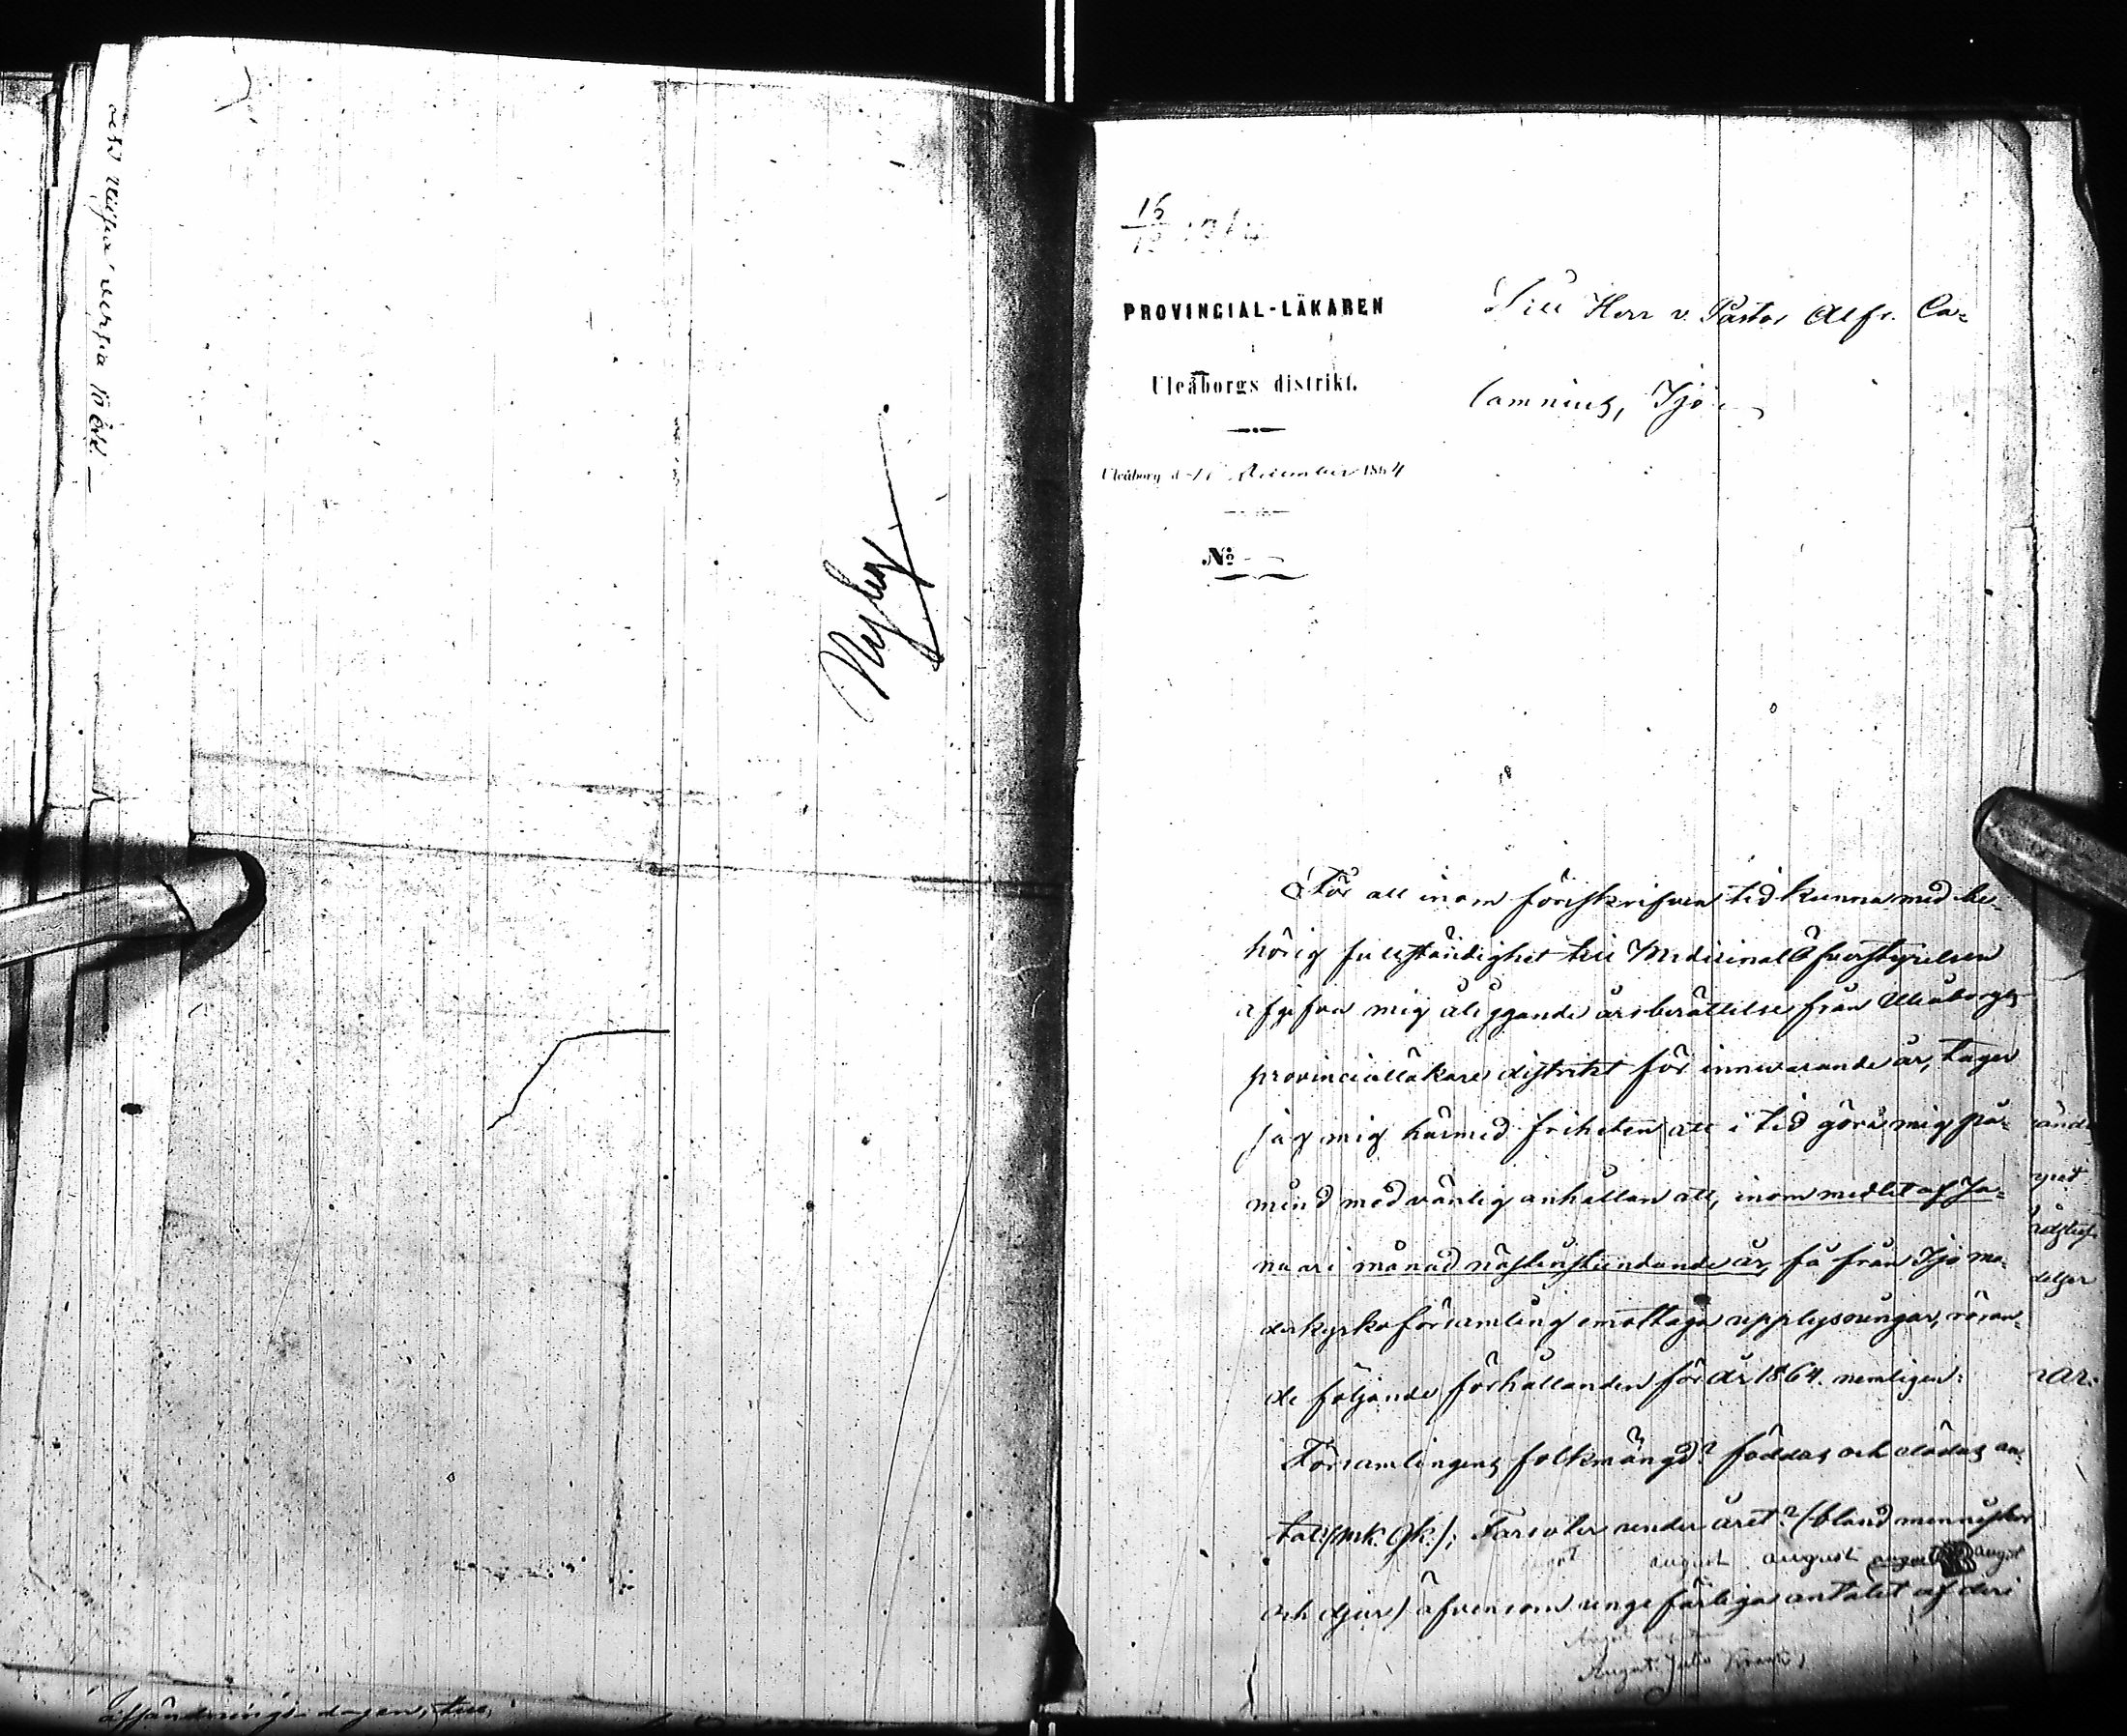 Nyby
affändnings-dagen, till
16
12
PROVINCIAL-LÄKAREN
Uleåborgs distrikt.
Uleåborg d. December 1864
No
Till Herr v. Pastor Alfr. Ca-
lamnius, Ijo
För att inom föreskrifven tid kunna med be-
hörig fullständighet till Medicinal Öfverstyrelsen
afgifva mig åliggande årsberättelse från Uleåborgs
provincialläkare distrikt för innevarande år, tager
jag mig härmed friheten att i tid göra mig på-
mind med vänlig anhållan att, inom medlet af Ja-
nuari månad nästinstundande år, få från Ijo mo-
derkyrkoförsamling emottaga upplysningar, röran-
de följande förhållanden för år 1864. nemligen:
Församlingens folkmängd? föddas och dödas an-
tal (Mk. Qk.); Farsoter under året? (bland menniskor
august august august august
och djur) äfvensom ungefärliga antalet af deri
August Julia
rar.